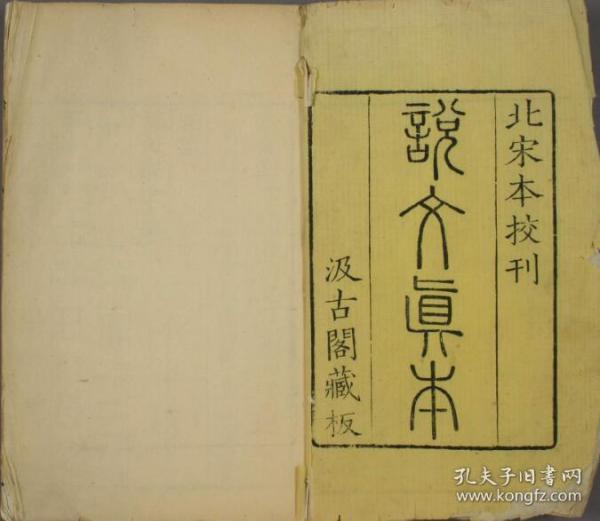 北宋本挍刊
說文眞本
汲古閣藏板
孔夫子旧书网
www.kongfz.com